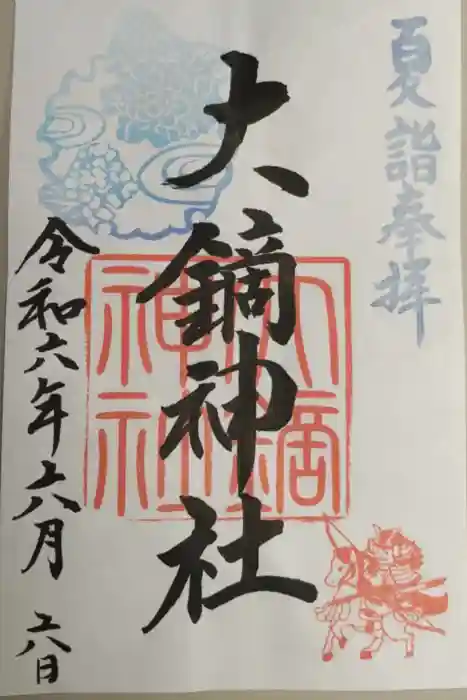 夏詣奉拝
大鏑神社
大鏑
神社
令和六年六月六日